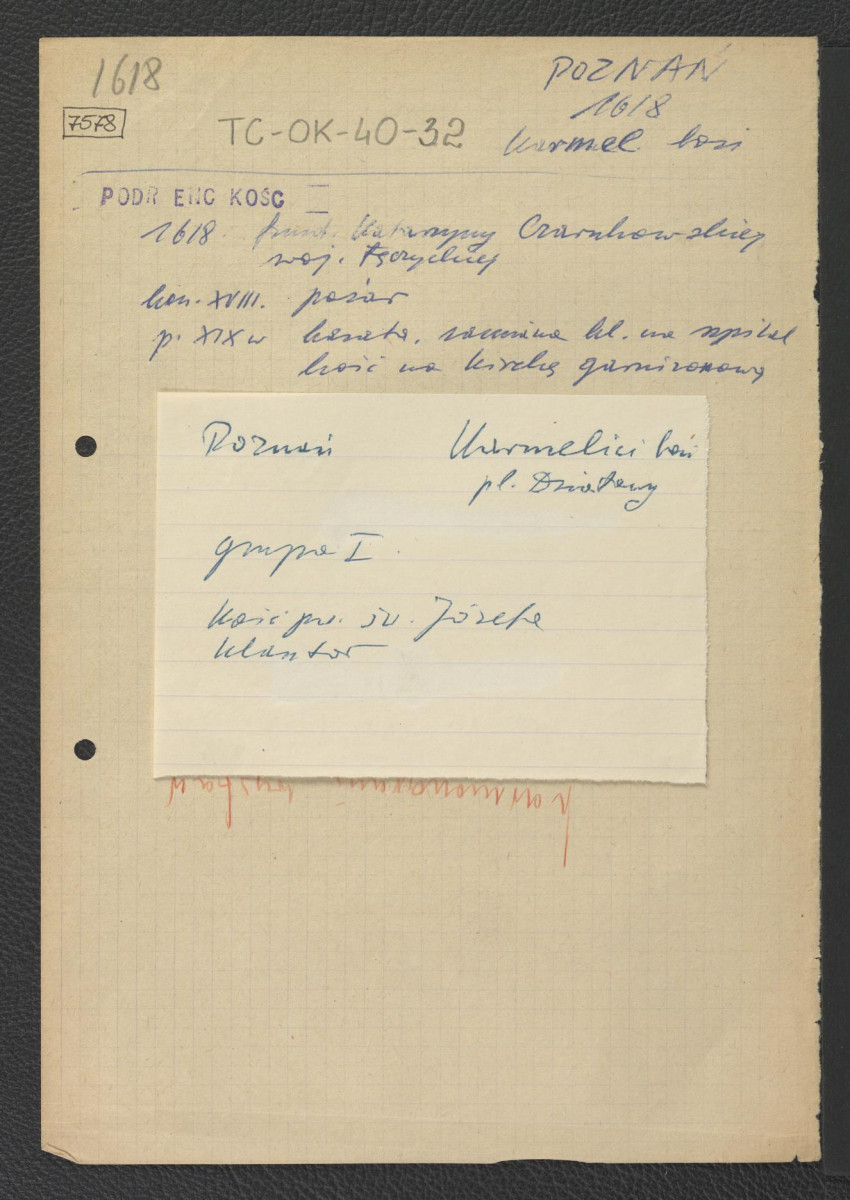 1618
7578
TC-OK-40-32
POZNAŃ
1618
Karmel. bosi
PODR ENC KOŚC
1618. fund. Katarzyny Czarnkowskiej
woj. Łęczyckiej
kon. XVIII. pożar
p. XIX w kasata, zamiana kl. na szpital
kość na kirchę garnizonową
Poznań Karmelici bosi
pl. Działowy
grupa I.
Kość pw. św. Józefa
Klasztor